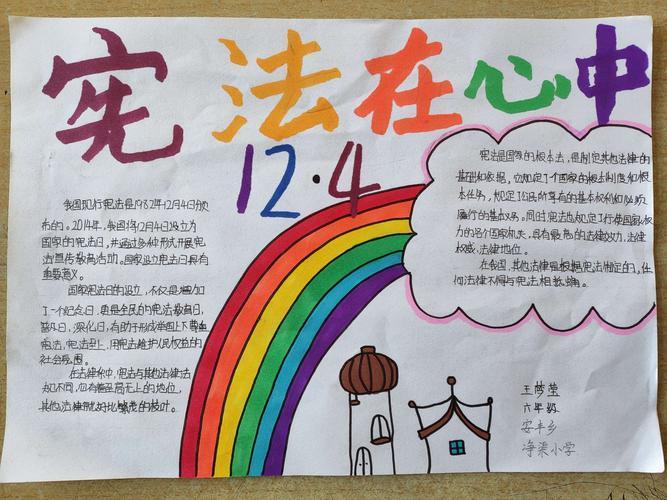 宪法在心中
12·4
我国现行宪法是1982年12月4日颁
布的。2014年,我国将12月4日设立为
国家的宪法日,并通过多种形式开展宪
法宣传教育活动。国家设立宪法日具有
重要意义。
国家宪法日的设立,不仅是增加
了一个纪念日,更是全民的宪法教育日、
普及日、深化日,有助于形成举国上下尊重
宪法、宪法至上、用宪法维护人民权益的
社会氛围。
在法律中,宪法与其他法律法
规不同,它有着至高无上的地位,
其他法律就好比繁茂的枝叶。
宪法是国家的根本法,是制定其他法律的
基础和依据,它规定了国家的根本制度和根
本任务,规定了公民所享有的基本权利和必须
履行的基本义务。同时,宪法也规定了行使国家权
力的各个国家机关,具有最高的法律效力、法律
权威、法律地位。
在我国,其他法律是根据宪法制定的,任
何法律不得与宪法相抵触。
王梦莹
六年级
安丰乡
净渠小学